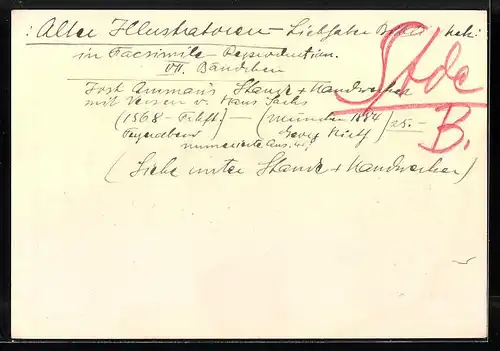 : Alter Illustratoren – Liebhaber Bibliothek:
in Facsimile – Reproduction.
VII. Bändchen
Jost Ammans Stände + Handwerker
mit Versen v. Hans Sachs
(1568 – Feyerabend) — (München 1884 Georg Hirth) 25.–
numerierte Aus.
(Siehe unter Stände + Handwerker)
Stde
B.